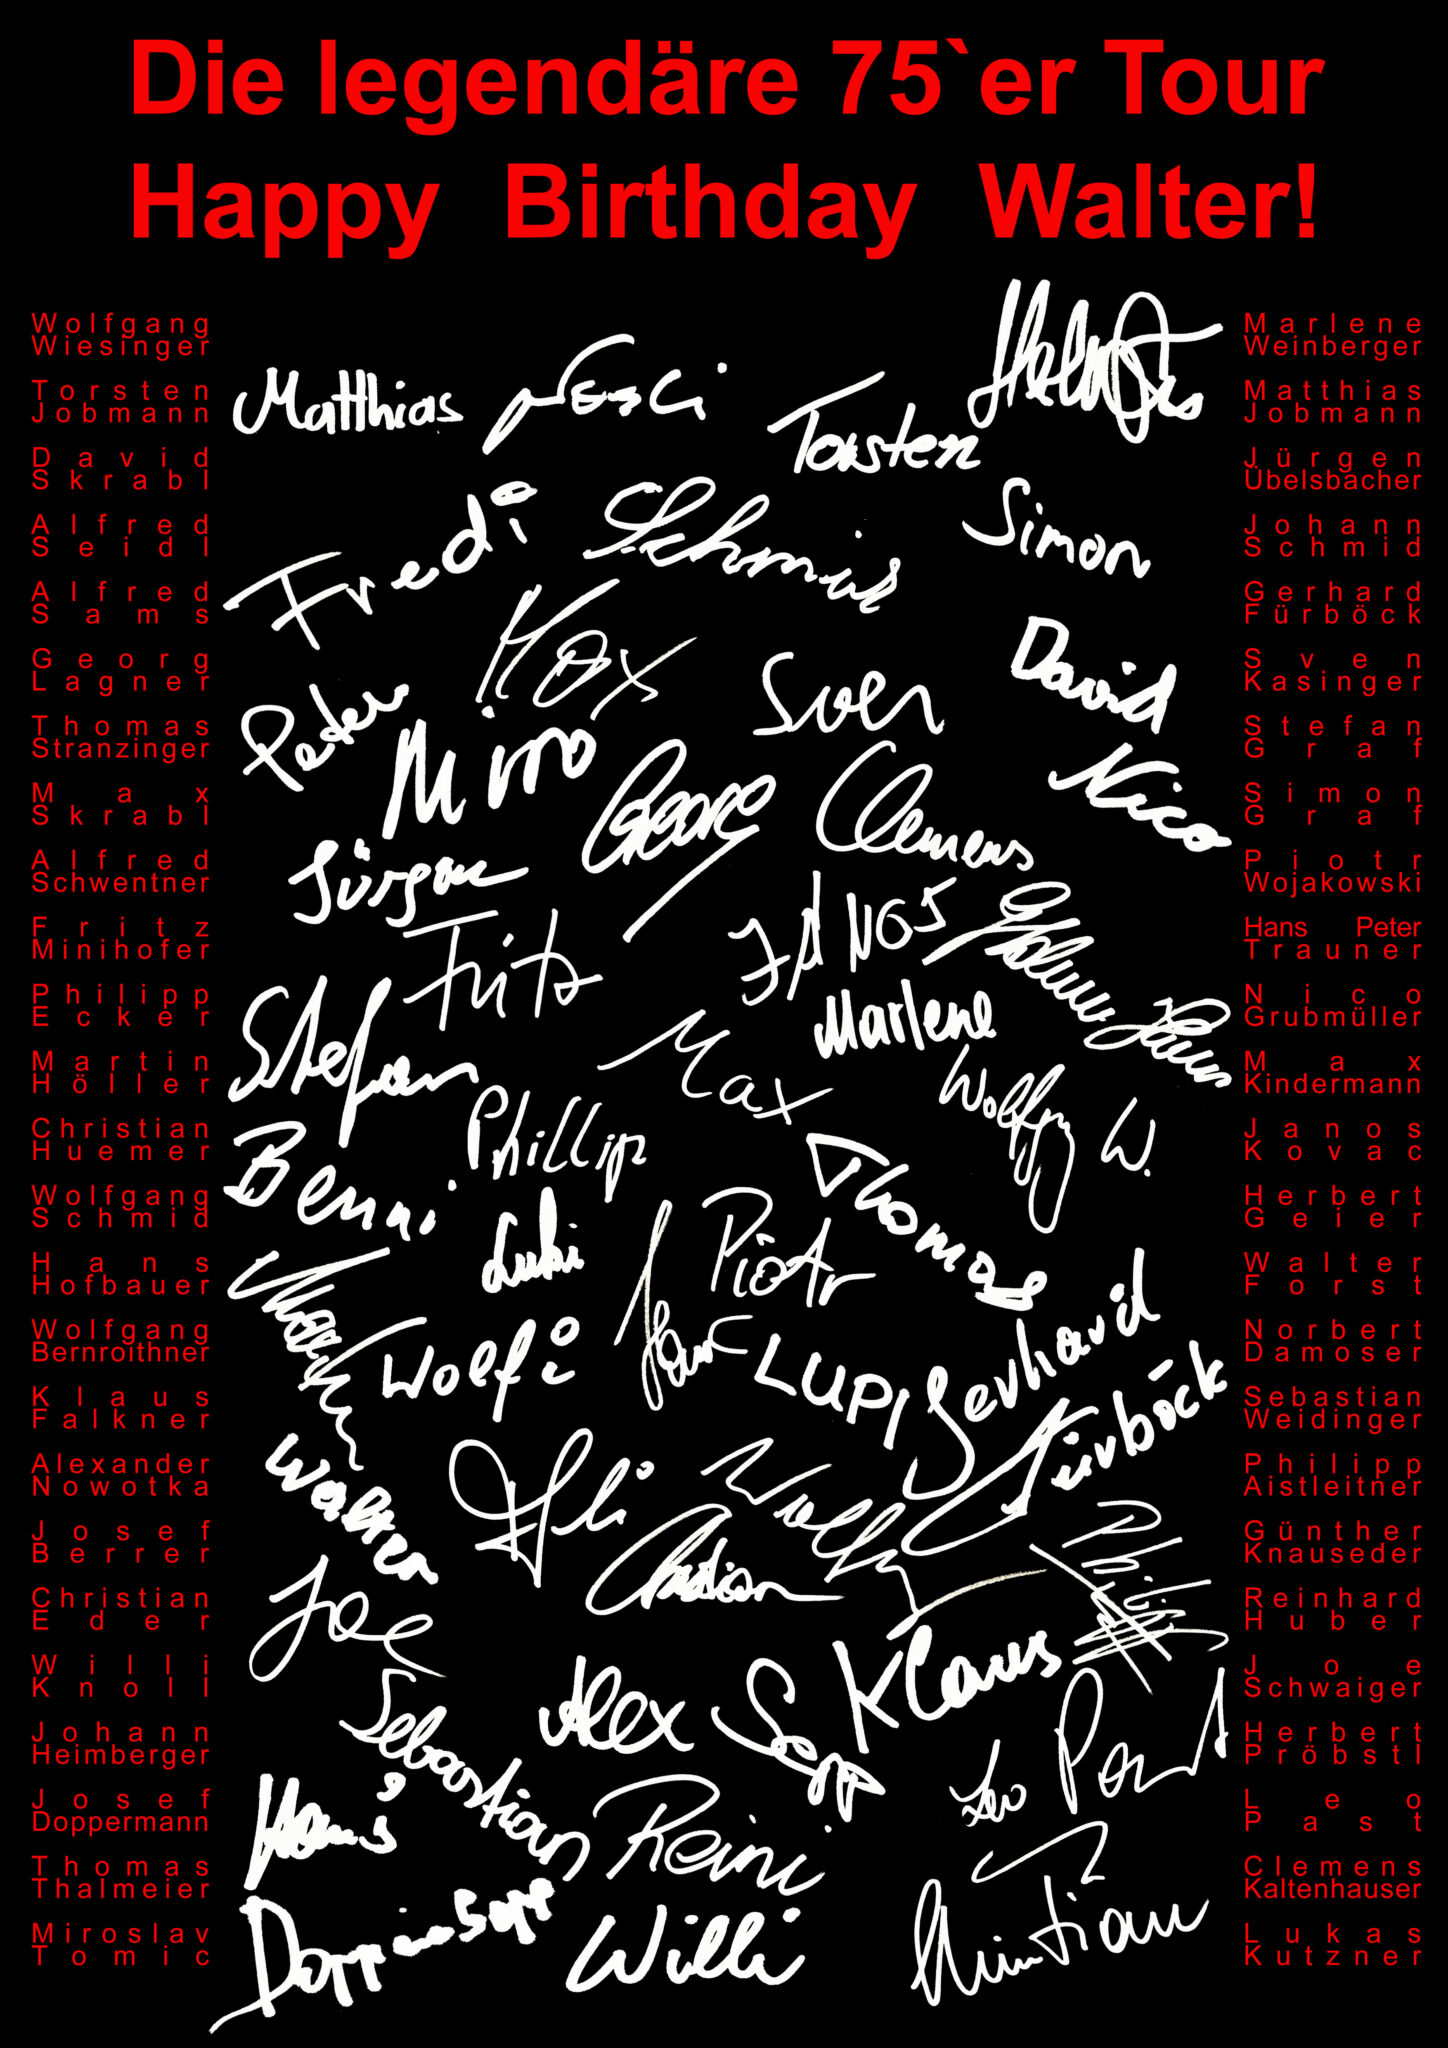 Die legendäre 75`er Tour
Happy Birthday Walter!
Wolfgang
Wiesinger
Torsten
Jobmann
David
Skrabl
Alfred
Seidl
Alfred
Sams
Georg
Lagner
Thomas
Stranzinger
Max
Skrabl
Alfred
Schwentner
Fritz
Minihofer
Philipp
Ecker
Martin
Höller
Christian
Huemer
Wolfgang
Schmid
Hans
Hofbauer
Wolfgang
Bernroithner
Klaus
Falkner
Alexander
Nowotka
Josef
Berrer
Christian
Eder
Willi
Knoll
Johann
Heimberger
Josef
Doppermann
Thomas
Thalmeier
Miroslav
Tomic
Matthias
Torsten
Fredi
Schmid
Simon
Max
Sven
David
Peter
Miro
Georg
Clemens
Nico
Jürgen
Fritz
JANOS
Stefan
Max
Marlene
Hans
Phillip
Wolfg W.
Benni
Thomas
Luki
Piotr
Wolfi
LUPI
Gerhard
Fürböck
Walter
Christian
Joe
Klaus
Sebastian
Alex
Sepp
Leo Past
Hans
Reini
Doppina Sepp
Willi
Christian
Marlene
Weinberger
Matthias
Jobmann
Jürgen
Übelsbacher
Johann
Schmid
Gerhard
Fürböck
Sven
Kasinger
Stefan
Graf
Simon
Graf
Piotr
Wojakowski
Hans Peter
Trauner
Nico
Grubmüller
Max
Kindermann
Janos
Kovac
Herbert
Geier
Walter
Forst
Norbert
Damoser
Sebastian
Weidinger
Philipp
Aistleitner
Günther
Knauseder
Reinhard
Huber
Joe
Schwaiger
Herbert
Pröbstl
Leo
Past
Clemens
Kaltenhauser
Lukas
Kutzner